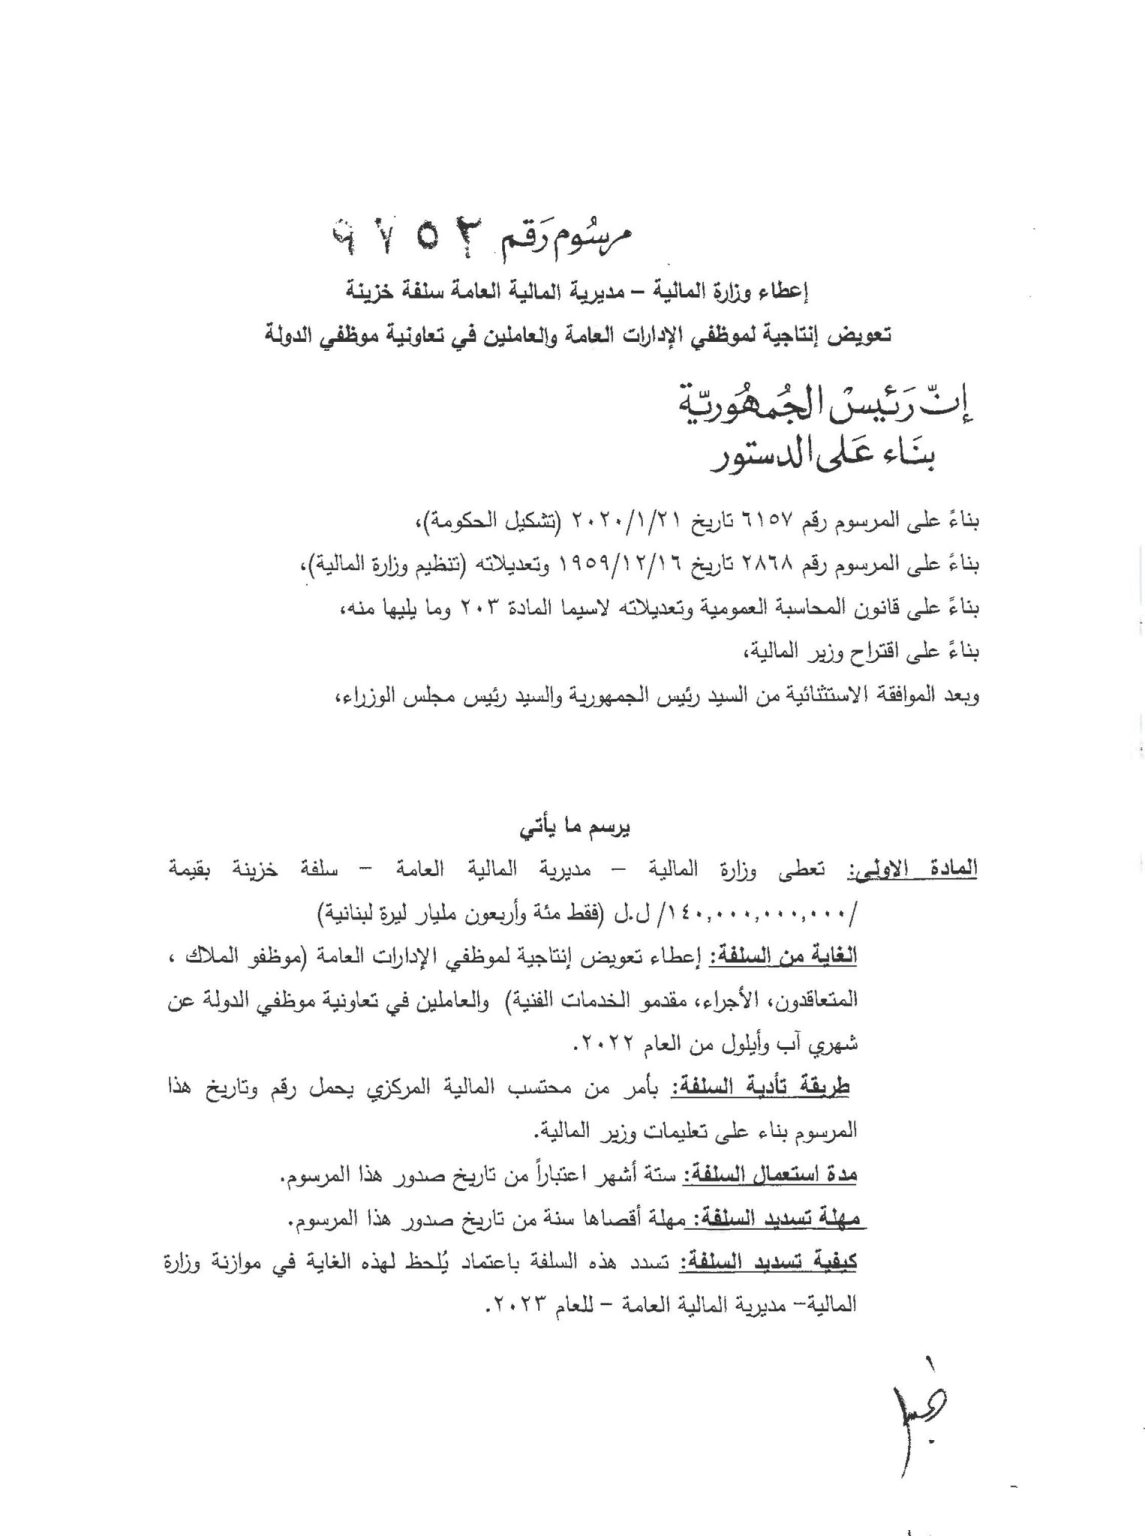 مرسُوم رَقم ٩٧٥٣
إعطاء وزارة المالية – مديرية المالية العامة سلفة خزينة
تعويض إنتاجية لموظفي الإدارات العامة والعاملين في تعاونية موظفي الدولة
إنّ رَئيسْ الجُمهُوريّة
بنَاء عَلى الدستور
بناءً على المرسوم رقم ٦١٥٧ تاريخ ٢٠٢٠/١/٢١ (تشكيل الحكومة)،
بناءً على المرسوم رقم ٢٨٦٨ تاريخ ١٩٥٩/١٢/١٦ وتعديلاته (تنظيم وزارة المالية)،
بناءً على قانون المحاسبة العمومية وتعديلاته لاسيما المادة ٢٠٣ وما يليها منه،
بناءً على اقتراح وزير المالية،
وبعد الموافقة الاستثنائية من السيد رئيس الجمهورية والسيد رئيس مجلس الوزراء،
يرسم ما يأتي
المادة الاولى: تعطى وزارة المالية – مديرية المالية العامة – سلفة خزينة بقيمة
/١٤٠,٠٠٠,٠٠٠,٠٠٠/ ل.ل (فقط مئة وأربعون مليار ليرة لبنانية)
الغاية من السلفة: إعطاء تعويض إنتاجية لموظفي الإدارات العامة (موظفو الملاك ،
المتعاقدون، الأجراء، مقدمو الخدمات الفنية) والعاملين في تعاونية موظفي الدولة عن
شهري آب وأيلول من العام ٢٠٢٢.
طريقة تأدية السلفة: بأمر من محتسب المالية المركزي يحمل رقم وتاريخ هذا
المرسوم بناء على تعليمات وزير المالية.
مدة استعمال السلفة: ستة أشهر اعتباراً من تاريخ صدور هذا المرسوم.
مهلة تسديد السلفة: مهلة أقصاها سنة من تاريخ صدور هذا المرسوم.
كيفية تسديد السلفة: تسدد هذه السلفة باعتماد يُلحظ لهذه الغاية في موازنة وزارة
المالية– مديرية المالية العامة – للعام ٢٠٢٣.